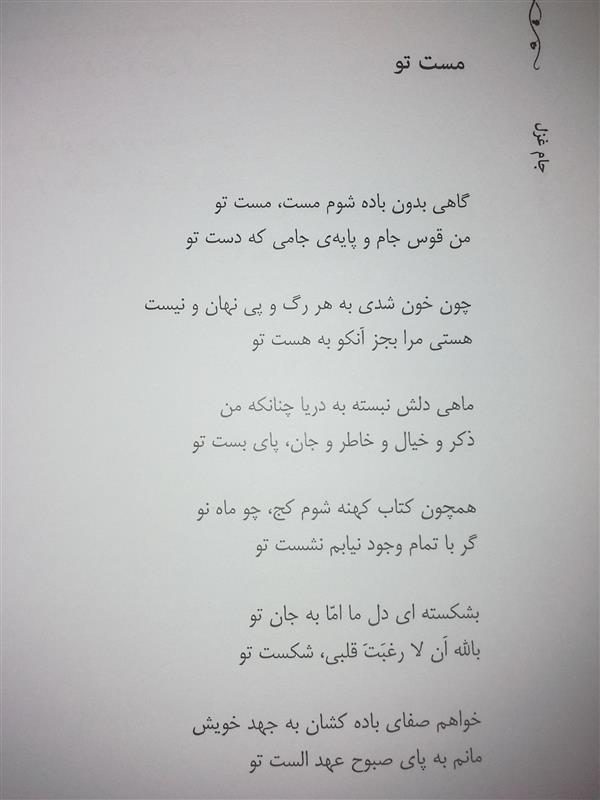 جام غزل
مست تو
گاهی بدون باده شوم مست، مست تو
من قوس جام و پایه‌ی جامی که دست تو
چون خون شدی به هر رگ و پی نهان و نیست
هستی مرا بجز آنکو به هست تو
ماهی دلش نبسته به دریا چنانکه من
ذکر و خیال و خاطر و جان، پای بست تو
همچون کتاب کهنه شوم کج، چو ماه نو
گر با تمام وجود نیابم نشست تو
بشکسته ای دل ما امّا به جان تو
بالله اَن لا رغبَتَ قلبی، شکست تو
خواهم صفای باده کشان به جهد خویش
مانم به پای صبوح عهد الست تو